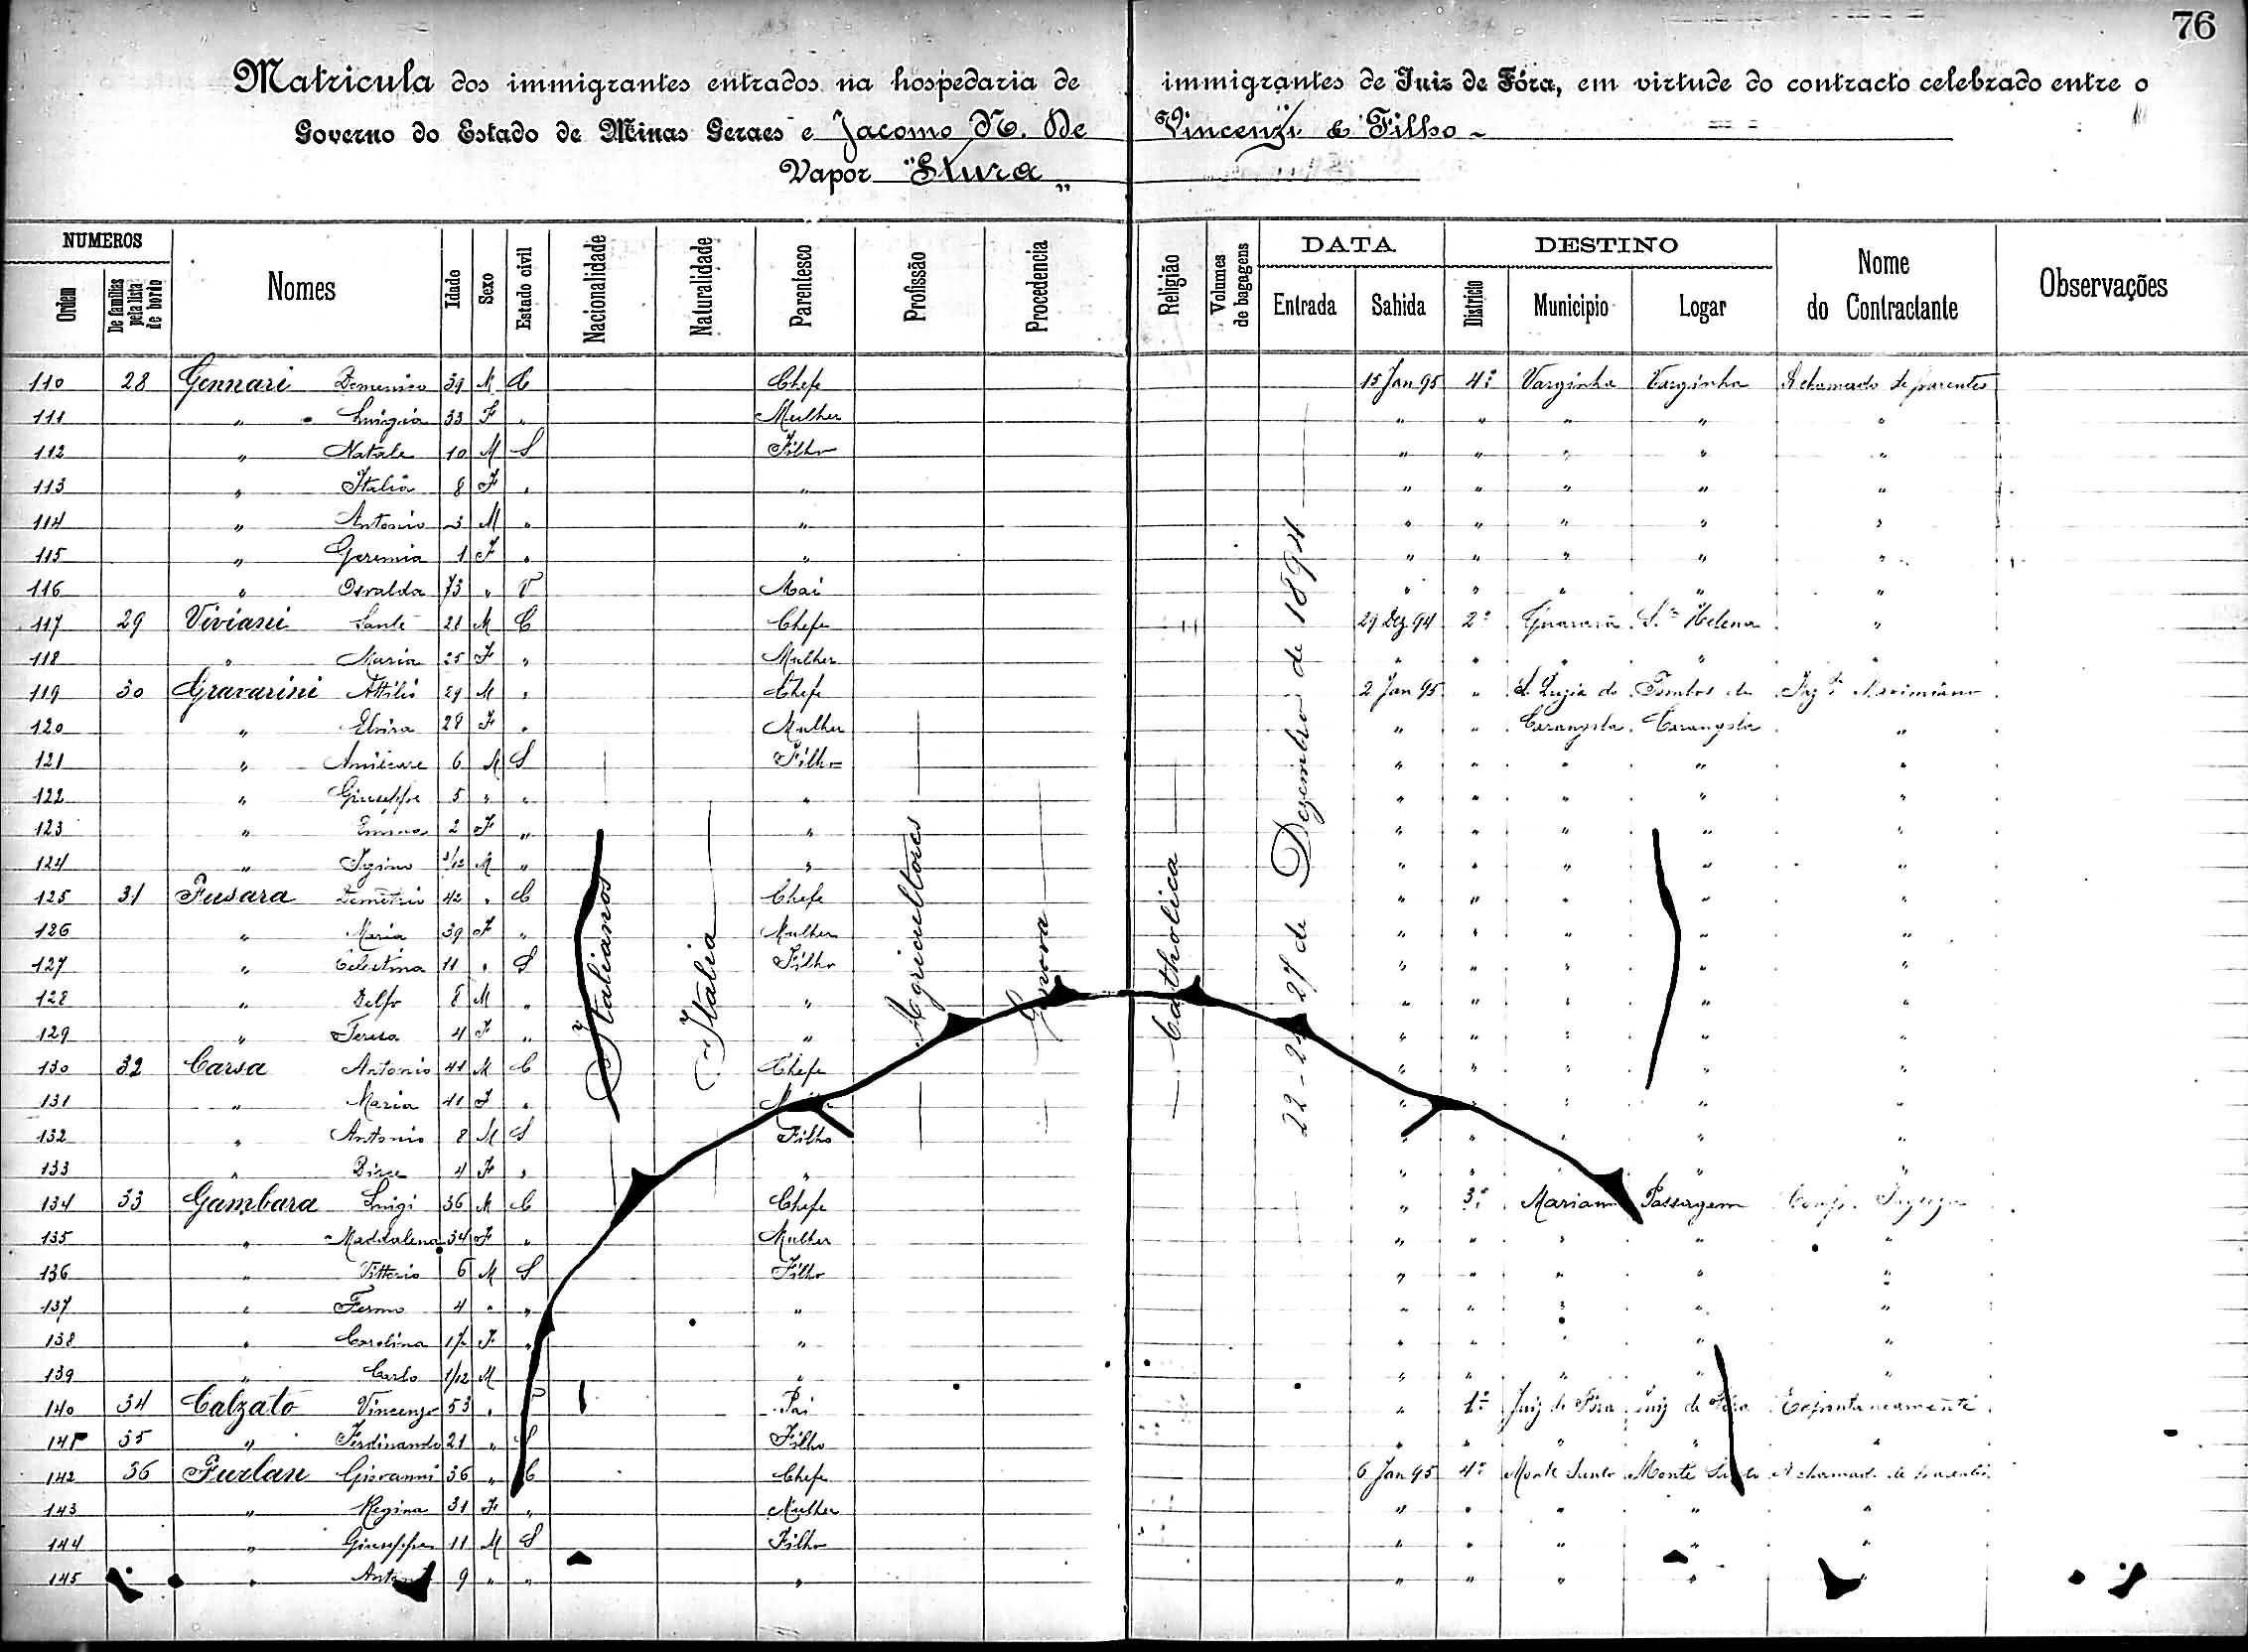 76
Matricula dos immigrantes entrados na hospedaria de immigrantes de Juiz de Fóra, em virtude do contracto celebrado entre o
Governo do Estado de Minas Geraes e Jacomo N. De Vincenzi & Filho
Vapor "Stura"
NUMEROS DATA DESTINO
Ordem De familias pela lista de bordo Nomes Idade Sexo Estado civil Nacionalidade Naturalidade Parentesco Profissão Procedencia Religião Volumes de bagagens Entrada Sahida Districto Municipio Logar Nome do Contractante Observações
Italianos
Italia
Agricultores
Genova
Catholica
27 de Dezembro de 1894
110 28 Gennari Domenico 39 M C Chefe 15 Jan 95 4º Varginha Varginha A chamado de parentes
111 " Luigia 33 F " Mulher " " " " "
112 " Natale 10 M S Filho " " " " "
113 " Italia 8 F " " " " " " "
114 " Antonio 3 M " " " " " " "
115 " Geremia 1 F " " " " " " "
116 " Osvalda 73 " V Mai " " " " "
117 29 Viviani Sante 21 M C Chefe 29 Dez 94 2º Guarará Sta Helena "
118 " Maria 25 F " Mulher " " " " "
119 30 Gravarini Attilio 29 M " Chefe 2 Jan 95 " S. Luzia do Tombos de
120 " Elvira 28 F " Mulher " " Carangola Carangola "
121 " Amilcare 6 M S Filho " " " " "
122 " Giuseppe 5 " " " " " " " "
123 " Emma 2 F " " " " " " "
124 " Igino M " " " " " " "
125 31 Fusara Demetrio 42 " C Chefe " " " " "
126 " Maria 39 F " Mulher " " " " "
127 " Celestina 11 " S Filho " " " " "
128 " Delfo 8 M " " " " " " "
129 " Teresa 4 F " " " " " " "
130 32 Carsa Antonio 41 M C Chefe " " " " "
131 " Maria 41 F " " " " " "
132 " Antonio 8 M S Filho " " " " "
133 " Dirce 4 F " " " " " " "
134 33 Gambara Luigi 36 M C Chefe " 3º Marianna Passagem
135 " Maddalena 34 F " Mulher " " " " "
136 " Vittorio 6 M S Filho " " " " "
137 " Fermo 4 " " " " " " " "
138 " Carolina F " " " " " " "
139 " Carlo 1/12 M " " " " " "
140 34 Calzato Vincenzo 53 " V Pai " 1º Juiz de Fóra Juiz de Fóra Espontaneamente
141 35 " Ferdinando 21 " S Filho " " " " "
142 36 Furlan Giovanni 36 " C Chefe 6 Jan 95 4º Monte Santo Monte Santo A chamado de parentes
143 " Regina 31 F " Mulher " " " " "
144 " Giuseppe 11 M S Filho " " " " "
145 " Antonio 9 " " " " " " " "